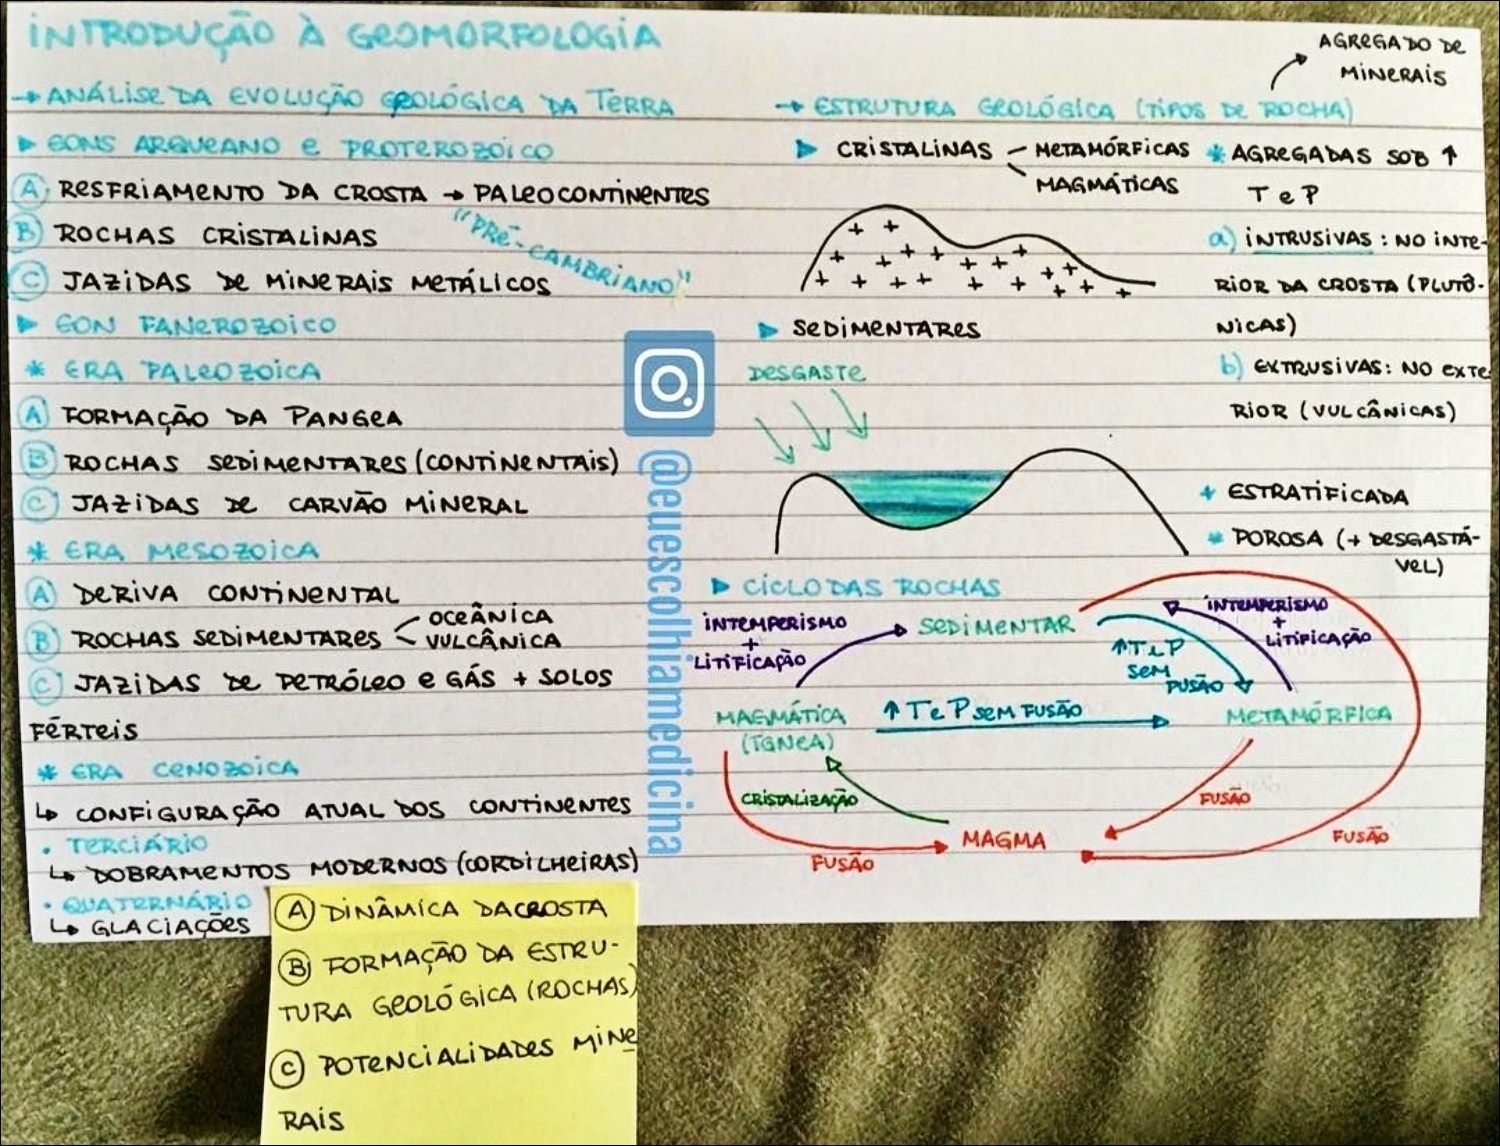 INTRODUÇÃO À GEOMORFOLOGIA
→ ANÁLISE DA EVOLUÇÃO GEOLÓGICA DA TERRA
▶ EONS ARQUEANO E PROTEROZÓICO
A RESFRIAMENTO DA CROSTA → PALEOCONTINENTES
B ROCHAS CRISTALINAS
"PRÉ-CAMBRIANO"
C JAZIDAS DE MINERAIS METÁLICOS
▶ EON FANEROZOICO
* ERA PALEOZOICA
A FORMAÇÃO DA PANGEA
B ROCHAS SEDIMENTARES (CONTINENTAIS)
C JAZIDAS DE CARVÃO MINERAL
* ERA MESOZOICA
A DERIVA CONTINENTAL
B ROCHAS SEDIMENTARES < OCEÂNICA
VULCÂNICA
C JAZIDAS DE PETRÓLEO E GÁS + SOLOS
FÉRTEIS
* ERA CENOZOICA
↳ CONFIGURAÇÃO ATUAL DOS CONTINENTES
• TERCIÁRIO
↳ DOBRAMENTOS MODERNOS (CORDILHEIRAS)
• QUATERNÁRIO
↳ GLACIAÇÕES
A DINÂMICA DA CROSTA
B FORMAÇÃO DA ESTRU-
TURA GEOLÓGICA (ROCHAS)
C POTENCIALIDADES MINE
RAIS
@euescolhiamedicina
AGREGADO DE
MINERAIS
→ ESTRUTURA GEOLÓGICA (TIPOS DE ROCHA)
▶ CRISTALINAS METAMÓRFICAS
MAGMÁTICAS
* AGREGADAS SOB ↑
T e P
a) INTRUSIVAS: NO INTE-
RIOR DA CROSTA (PLUTÔ-
NICAS)
b) EXTRUSIVAS: NO EXTE
RIOR (VULCÂNICAS)
▶ SEDIMENTARES
DESGASTE
* ESTRATIFICADA
* POROSA (+ DESGASTÁ-
VEL)
▶ CICLO DAS ROCHAS
INTEMPERISMO
+
LITIFICAÇÃO
SEDIMENTAR
↑ T e P
SEM
FUSÃO
INTEMPERISMO
+
LITIFICAÇÃO
MAGMÁTICA
(ÍGNEA)
↑ T e P SEM FUSÃO
METAMÓRFICA
CRISTALIZAÇÃO
FUSÃO
MAGMA
FUSÃO
FUSÃO